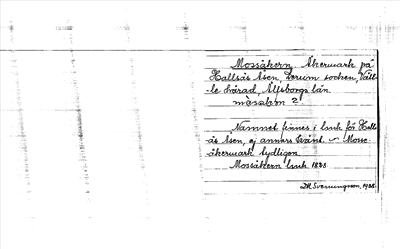 Mossåkern, Åkermark på
Hallsås Åsen, Lerum socken, Vätt-
le härad, Älfsborgs län.
måsakən 2
Namnet finnes i bruk för Hall-
ås Åsen, ej annars känt. – Moss-
åkermark tydligen.
Mossåkern bruk 1828
DH Svenungsson, 1928